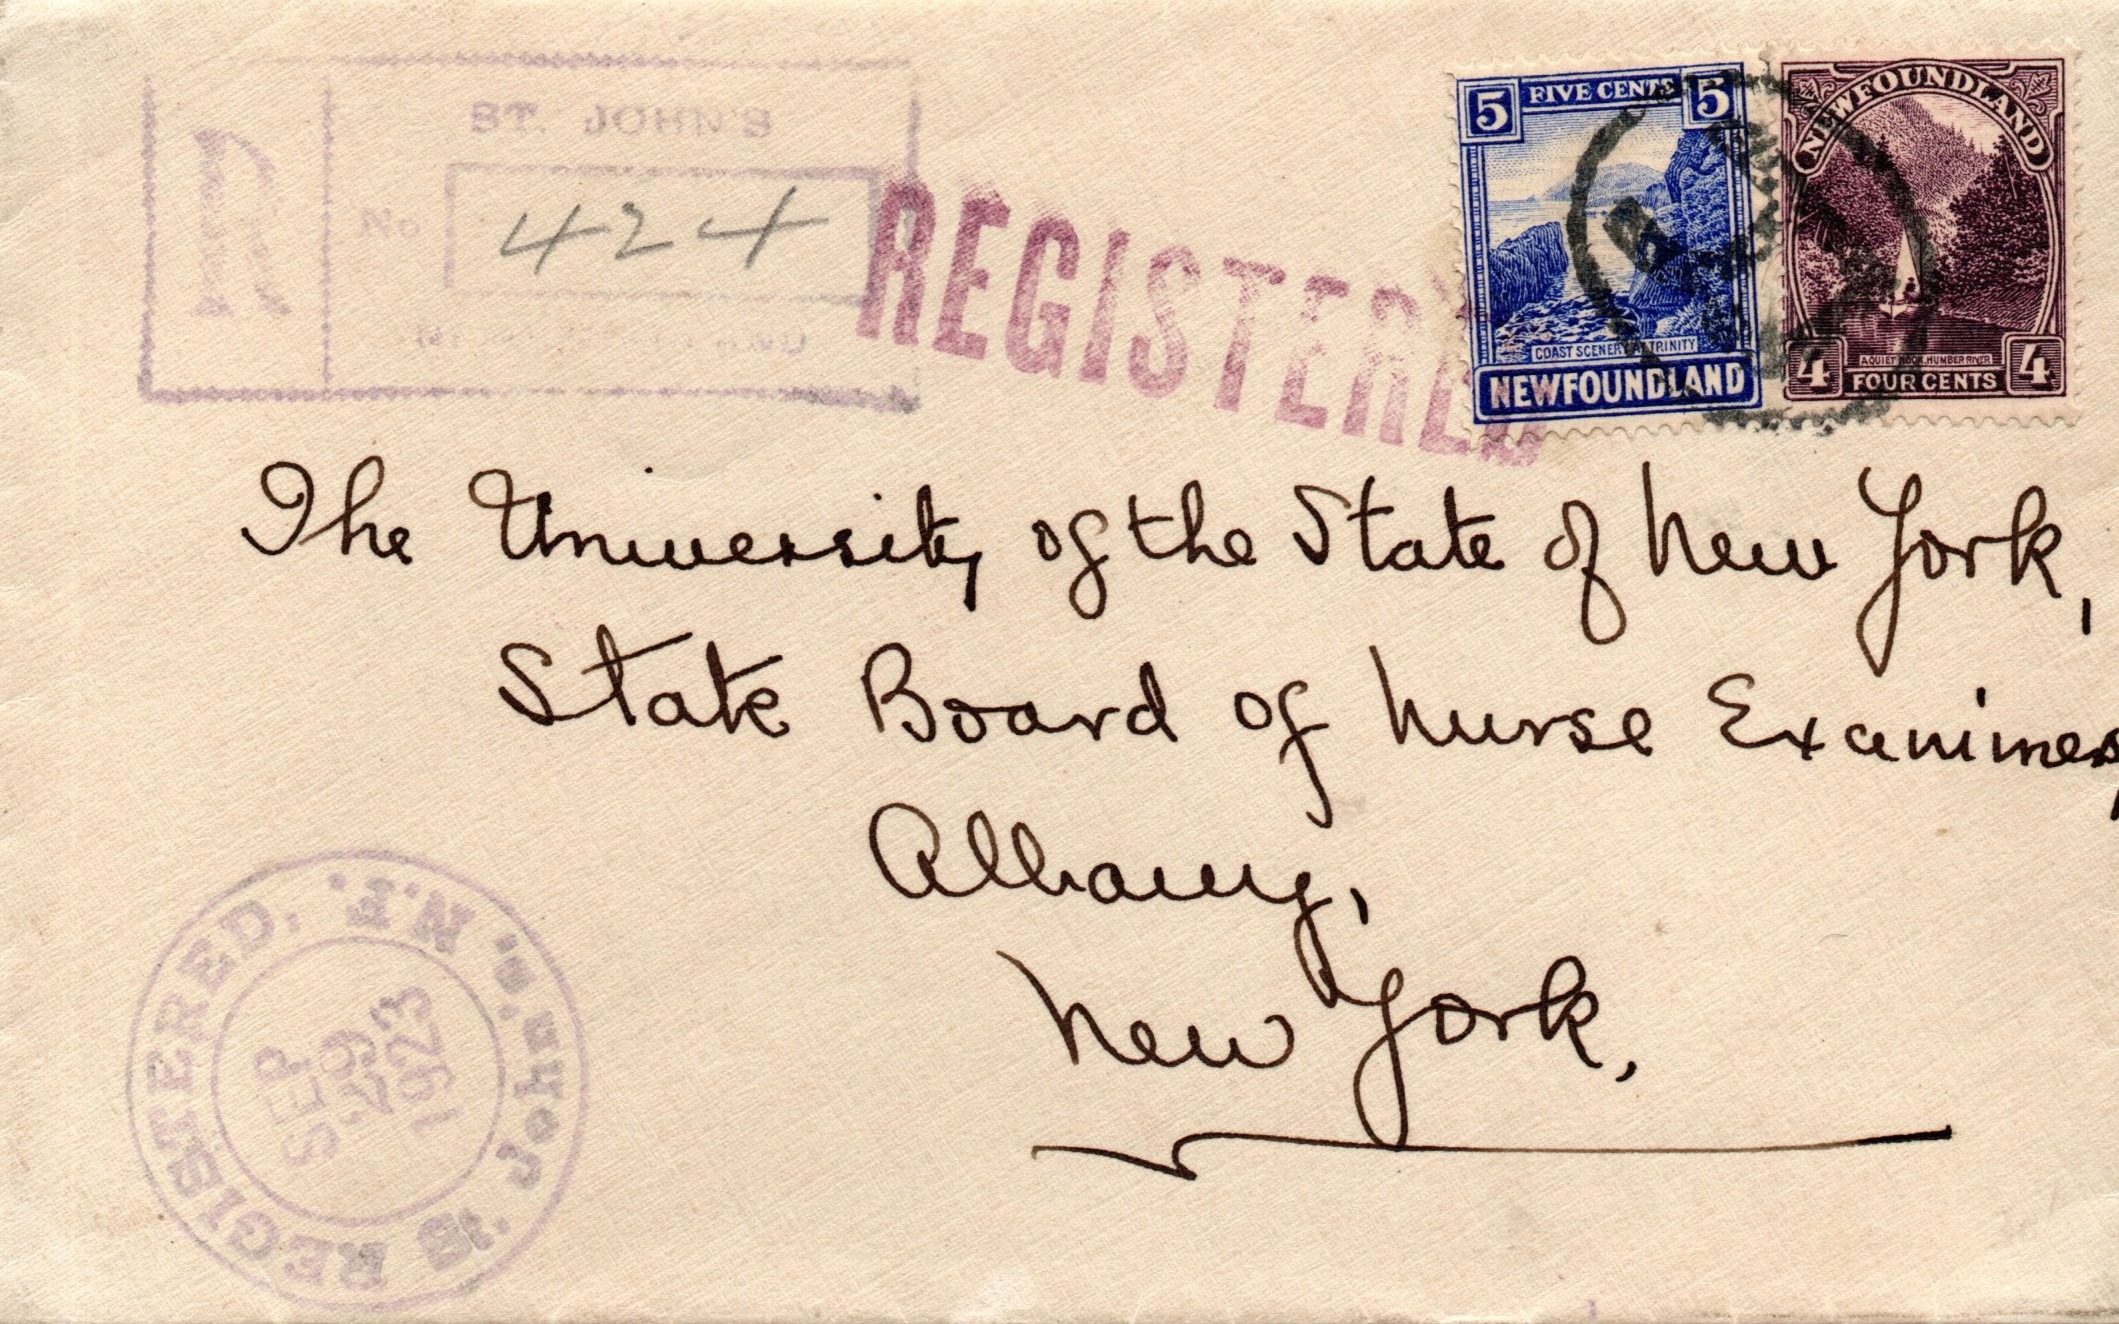 R
ST. JOHN'S
No 424
REGISTERED
5 FIVE CENTS 5
COAST SCENERY AT TRINITY
NEWFOUNDLAND
NEWFOUNDLAND
A QUIET NOOK, HUMBER RIVER
4 FOUR CENTS 4
The University of the State of New York,
State Board of Nurse Examiners,
Albany,
New York.
REGISTERED, St. John's, N.F.
SEP
29
1923